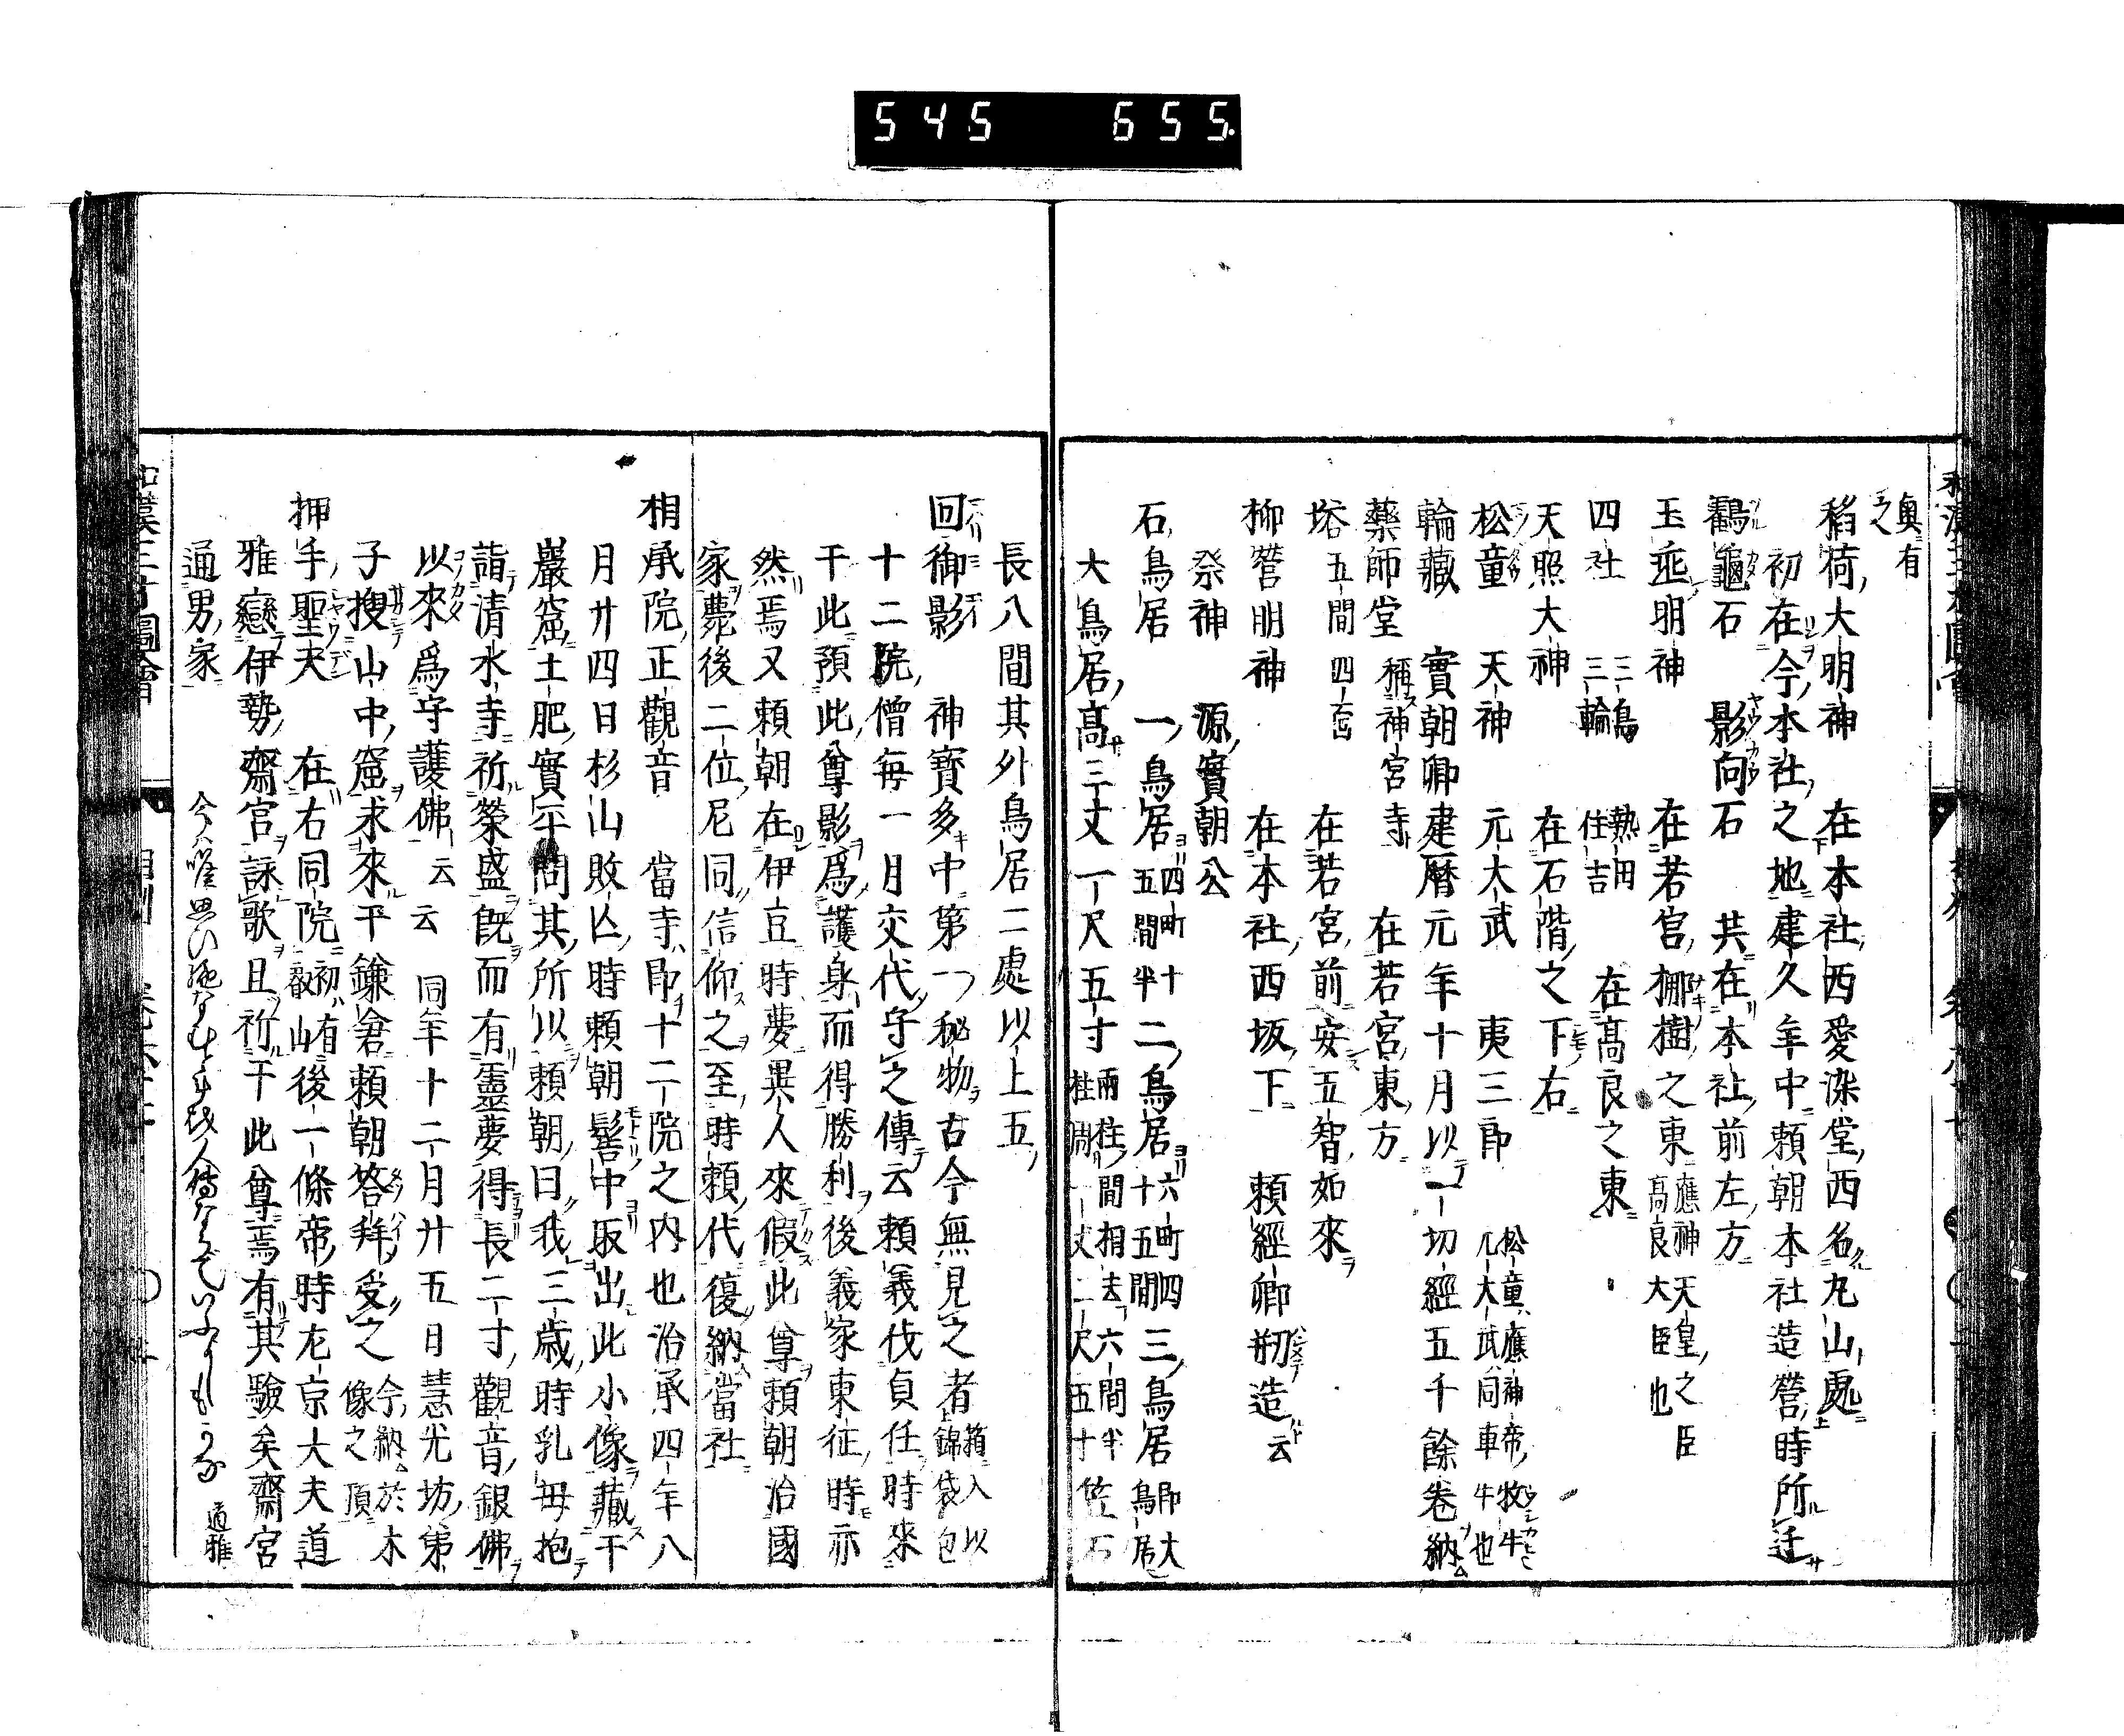 545 655.
奧有
之
稻荷大明神 在本社西愛染堂西名丸山處
初在今本社之地建久年中賴朝本社造營時所迁
鶴龜石 影向石 共在本社前左方
玉垂明神 在若宮梛樹之東 應神天皇之臣
高良大臣也
四社 三島 三輪 熱田 住吉 在髙良之東
天照大神 在石階之下右
松童 天神 元大武 夷三郎 松童應神帝牧牛
兀大武同車牛也
輪藏 實朝卿建曆元年十月以一切經五千餘卷納
藥師堂 稱神宮寺 在若宮東方
塔 五間四面 在若宮前安五智如來
柳營明神 在本社西坂下 賴經卿刱造云
祭神 源實朝公
石鳥居 一鳥居 四町十
五間半 二鳥居 六町四
十五間 三鳥居 即大
鳥居
大鳥居髙三丈一尺五寸 兩柱間相去六間半
柱周一丈二尺五寸 笠石
長八間其外鳥居二處以上五
回御影 神寶多中第一秘物古今無見之者 箱入以
錦袋包
十二院僧每一月交代守之傳云賴義伐貞任時來
于此預此尊影爲護身而得勝利後義家東征時亦
然焉又賴朝在伊豆時夢異人來假此尊賴朝治國
家薨後二位尼同信仰之至時賴代復納當社
相承院正觀音 當寺即十二院之内也治承四年八
月廿四日杉山敗亡時賴朝髻中取出此小像藏于
巖窟土肥實平問其所以賴朝曰我三歲時乳母抱
詣清水寺祈榮盛既而有靈夢得長二寸觀音銀佛
以來爲守護佛云云 同年十二月廿五日慧光坊第
子搜山中窟求來乎鎌倉賴朝答拜受之 今納於木
像之頂
押手聖天 在右同院 初有
叡山 後一條帝時左京大夫道
雅戀伊勢齋宮詠歌且祈于此尊焉有其驗矣齋宮
通男家
今ハ唯思ひ絶なむとはかりを人傳ならていふよしもかな 道雅